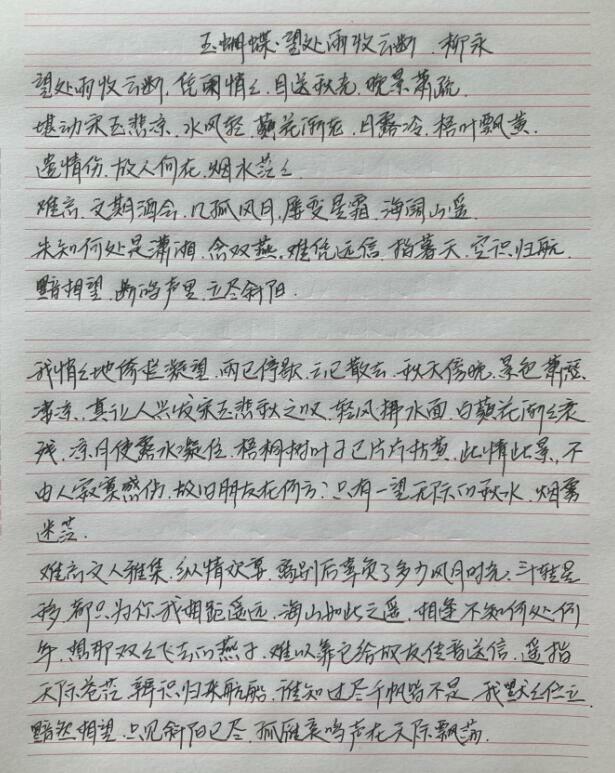 玉蝴蝶·望处雨收云断.柳永
望处雨收云断,凭阑悄々,目送秋光,晚景萧疏.
堪动宋玉悲凉,水风轻,蘋花渐老,月露冷,梧叶飘黄.
遣情伤,故人何在,烟水茫々
难忘,文期酒会,几孤风月,屡变星霜,海阔山遥
未知何处是潇湘,念双燕,难凭远信,指暮天,空识归航
黯相望,断鸿声里,立尽斜阳.
我悄々地倚栏凝望,雨已停歇,云已散去,秋天傍晚,景色萧瑟
凄凉,真让人兴发宋玉悲秋之叹,轻风拂水面,白蘋花渐々衰
残,凉月使露水凝住,梧桐树叶子已片片枯黄,此情此景,不
由人寂寞感伤,故旧朋友在何方?只有一望无际的秋水,烟雾
迷茫.
难忘文人雅集,纵情欢宴,离别后辜负了多少风月时光,斗转星
移都只为你我相距遥远,海山如此之遥,相逢不知何处何
年,想那双々飞去的燕子,难以靠它给故友传音送信,遥指
天际苍茫,辨识归来航船,谁知过尽千帆皆不是,我默々伫立
黯然相望,只见斜阳已尽,孤雁哀鸣声在天际飘荡.